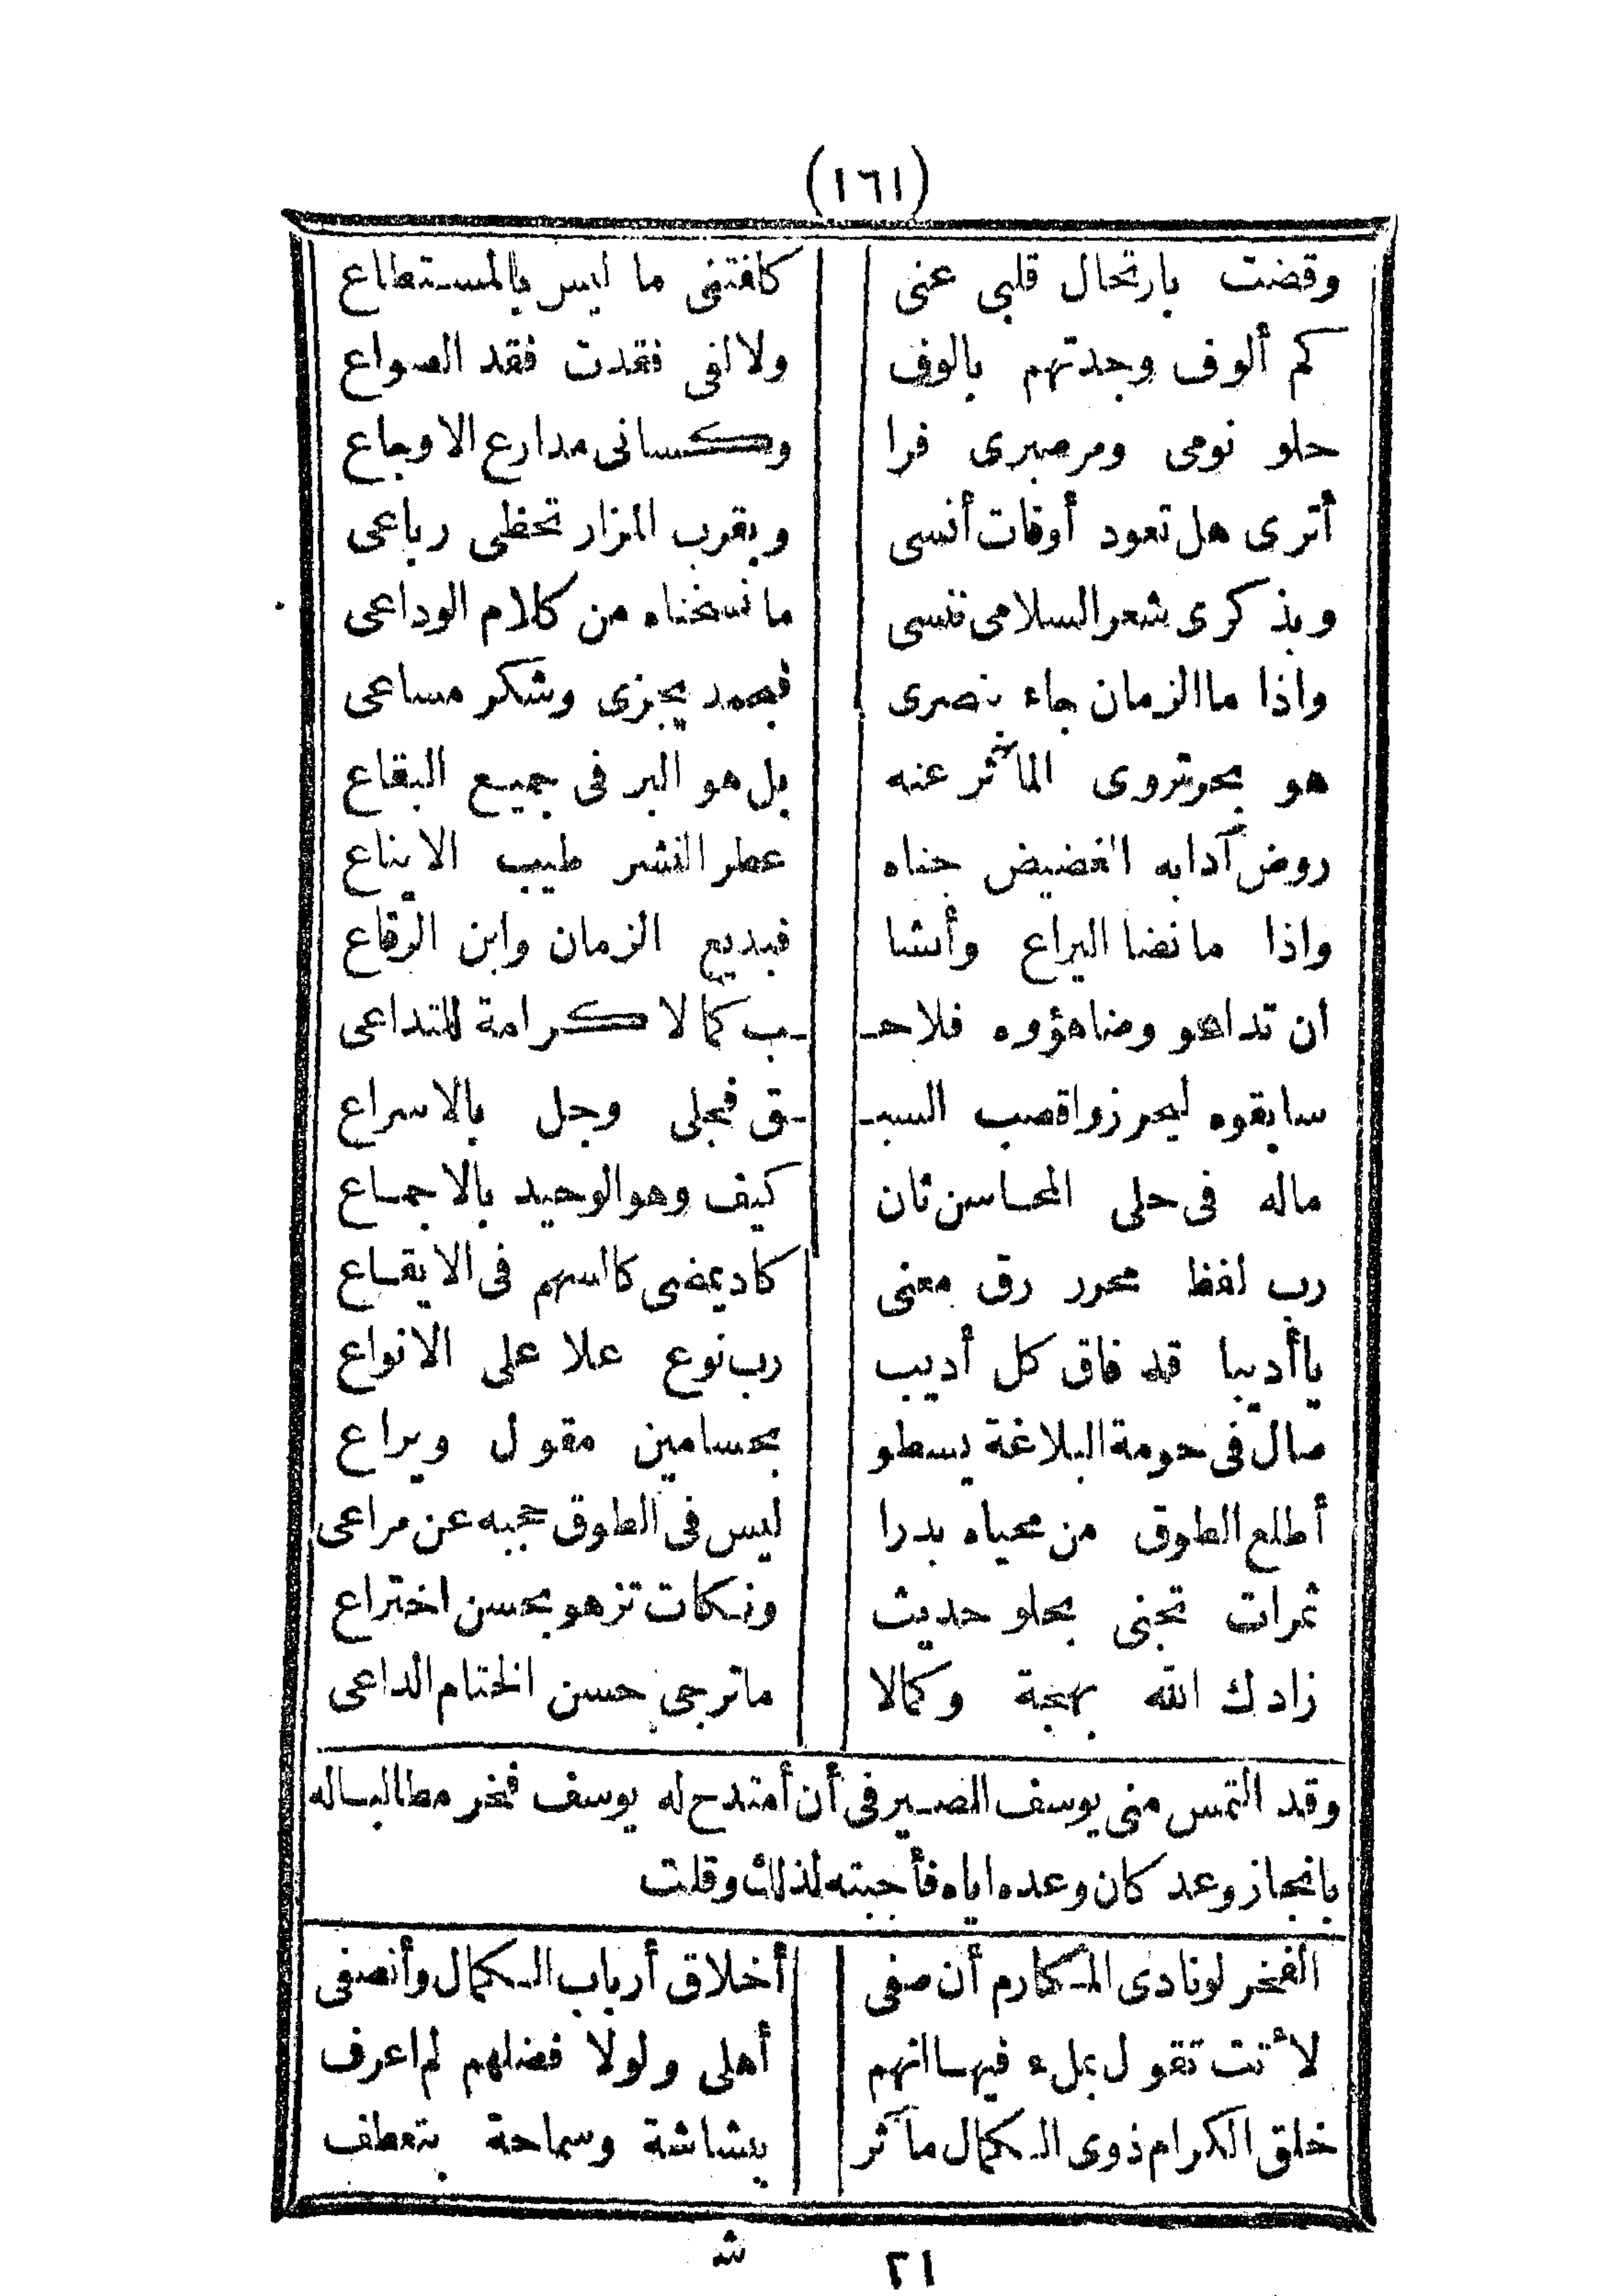 (١٦١)
وقضت بارتحال قلبي عنى كلفتنى ما ليس بالمستطاع
كم ألوف وجدتهم بالوف ولالفى فقدت فقد الصواع
حلو نومى ومر صبرى فرا وكسانى مدارع الاوجاع
أترى هل تعود أوقات أنسى وبقرب المزار تحظى رباعى
وبذكرى شعر السلامى ننسى ما نسخناه من كلام الوداعى
واذا ما الزمان جاء بنصرى فبحمد يجزى وشكر مساعى
هو بحر تروى المآثر عنه بل هو البر فى جميع البقاع
روض آدابه الغضيض جناه عطر النشر طيب الايناع
واذا ما نضا اليراع وأنشا فبديع الزمان وابن الرقاع
ان تداعو وضاهؤوه فلاحـ ـب كما لا كرامة للتداعى
سابقوه ليحرزوا قصب السبـ ـق فجلى وجل بالاسراع
ماله فى حلى المحاسن ثان كيف وهو الوحيد بالاجماع
رب لفظ محرر رق معنى كاد يمضى كالسهم فى الايقاع
يا أديبا قد فاق كل أديب رب نوع علا على الانواع
صال فى حومة البلاغة يسطو بحسامين مقول ويراع
أطلع الطوق من محياه بدرا ليس فى الطوق حجبه عن مراعى
ثمرات تجنى بحلو حديث ونكات تزهو بحسن اختراع
زادك الله بهجة وكمالا ما ترجى حسن الختام الداعى
وقد التمس منى يوسف النصير فى أن أمتدح له يوسف فخر مطالبا له
بانجاز وعد كان وعده اياه فأجبته لذلك وقلت
الفخر لو نادى المكارم أن صفى أخلاق أرباب الكمال وأنصفى
لأنت تقول بملء فيها انهم أهلى ولولا فضلهم لم اعرف
خلق الكرام ذوى الكمال مآثر ببشاشة وسماحة بتعطف
٢١ ش